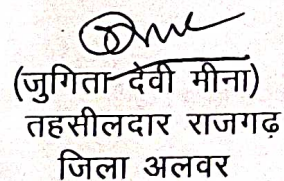 (जुगिता देवी मीना)
तहसीलदार राजगढ़
जिला अलवर